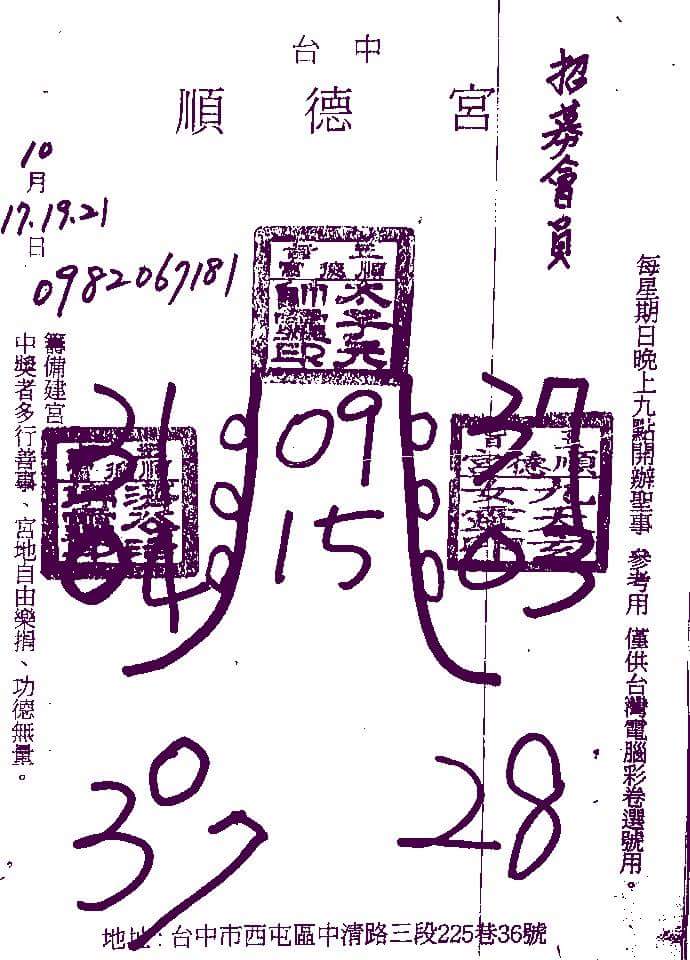 台中
順德宮
招募會員
10
月
17.19.21
日
0982067181
每星期日晚上九點開辦聖事 參考用 僅供台灣電腦彩卷選號用。
籌備建宮
中獎者多行善事、宮地自由樂捐、功德無量。
太子元
帥靈印
09
15
37
03
04
28
地址：台中市西屯區中清路三段225巷36號